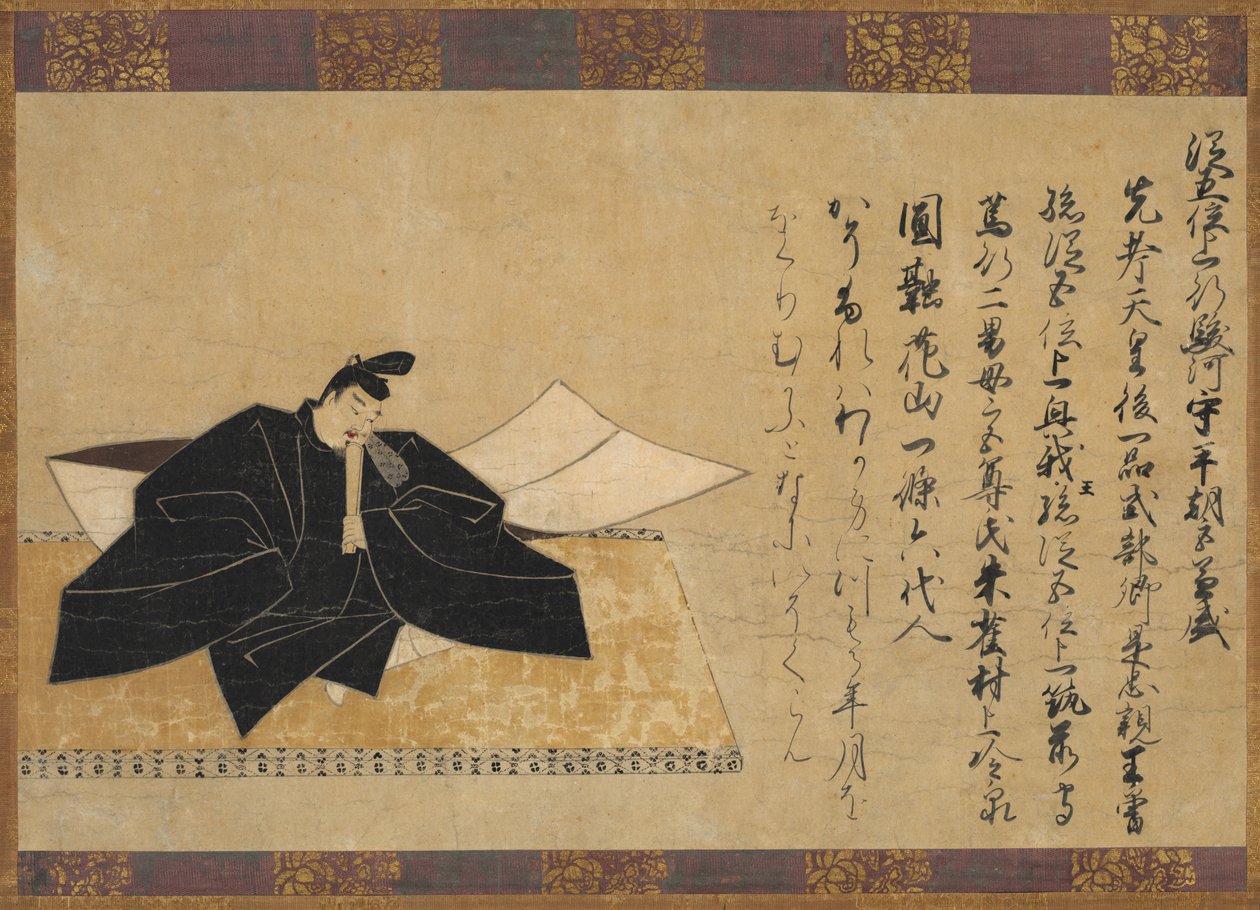 従五位上行駿河守平朝臣兼盛
光孝天皇後一品式部卿是忠親王曾
孫従五位上興我王孫従五位上筑前守
篤行二男母朱雀村上冷泉
圓融花山一條六代人
かそふれはわか身につもる年月を
をくりむかふとなにいそくらん